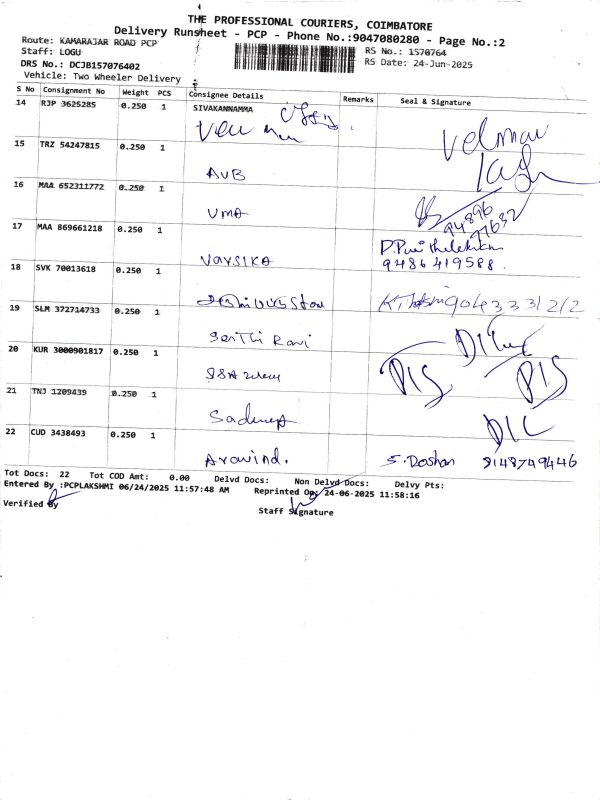 THE PROFESSIONAL COURIERS, COIMBATORE
Delivery Runsheet - PCP - Phone No.:9047080280 - Page No.:2
Route: KAMARAJAR ROAD PCP
Staff: LOGU
DRS No.: DCJB157076402
Vehicle: Two Wheeler Delivery
RS No.: 1570764
RS Date: 24-Jun-2025
S No Consignment No Weight PCS Consignee Details Remarks Seal & Signature
14 RJP 3625285 0.250 1 SIVAKANNAMMA
15 TRZ 54247815 0.250 1
AVB
16 MAA 652311772 0.250 1
UMA 94896 77632
17 MAA 869661218 0.250 1
VARSIKA 9486419588.
18 SVK 70013618 0.250 1
9043331212
19 SLM 372714733 0.250 1
Ravi
20 KUR 3000901817 0.250 1
21 TNJ 1209439 0.250 1
22 CUD 3438493 0.250 1
Aravind. S. Doshan 8148749446
Tot Docs: 22 Tot COD Amt: 0.00 Delvd Docs: Non Delvd Docs: Delvy Pts:
Entered By :PCPLAKSHMI 06/24/2025 11:57:48 AM Reprinted On: 24-06-2025 11:58:16
Verified By
Staff Signature